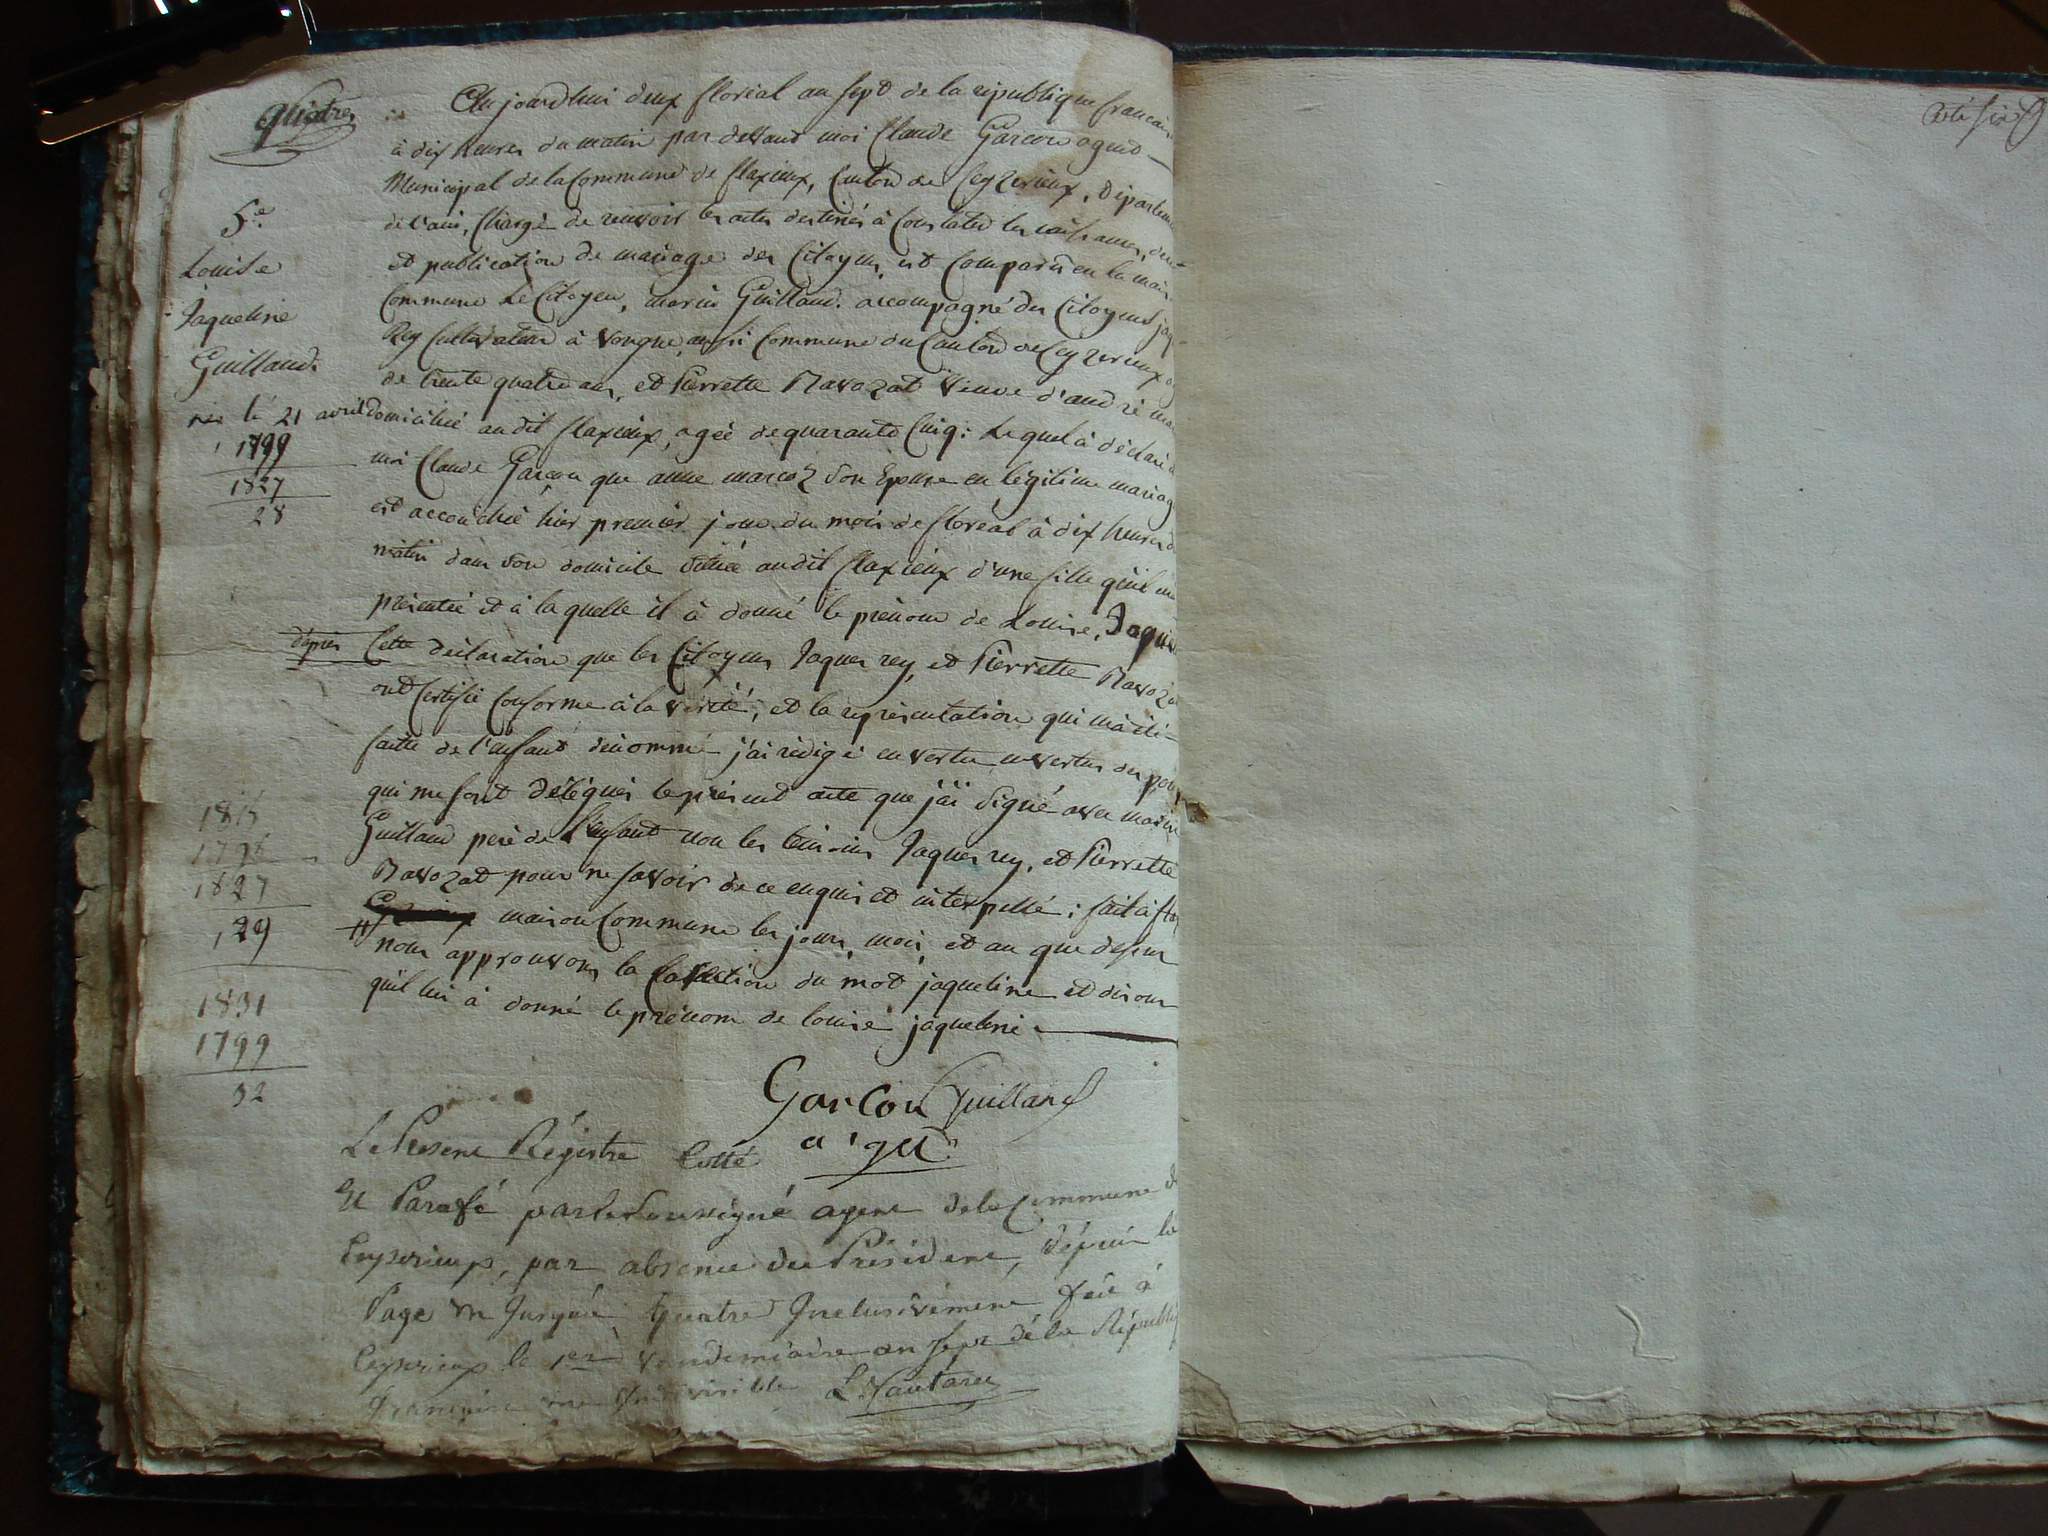 quatre
Au jourdhui deux floréal an sept de la république francais
à dix heures du matin par devant moi Claude Garcon agent
Municipal de la Commune de flaxieux, Canton de Ceyzerieux, Départem
de l'ain, Chargé de recevoir les actes destinés à Constater les naissances,
et publication de mariage des Citoyens, est Comparu en la mais
Commune Le Citoyen, marin Guilland. accompagné des Citoyens jaq
Rey Cultivateur à Vongne, aussi Commune du Canton de Ceyzerieux
de trente quatre ans, et Pierrette Navozat Veuve d'andré
domiciliée audit flaxieux, agée de quarante Cinq: Lequel à déclaré
moi Claude Garcon que anne marcoz son Epouse en légitime mariag
est accouchée hier premier jour du mois de floréal à dix heures
matin dans son domicile située audit flaxieux d'une fille qu'il
présentée et à la quelle il à donné le prénom de Louise, Jaque
d'après Cette déclaration que les Citoyens Jaques rey, et Pierrette Navoza
ont Certifié Conforme à la vérité, et la représentation qui m'a été
faitte de l'enfant dénommé j'ai rédigé en vertu en vertus des pou
qui me sont délégués le présent acte que j'ai signé avec marin
Guilland père de l'enfant non les témoins Jaques rey, et Pierrette
Navozat pour ne savoir de ce enquis et interpellé: fait à fla
maison Commune les jours, mois, et an que dessus
nous approuvons la Correction du mot jaqueline et disons
qu'il lui à donné le prénom de louise jaqueline
5.e
Louise
Jaqueline
Guilland.
née le 21 avril
1799
1827
28
1827
29
1831
1799
32
Garcon Guilland
a'gt
Le Present Régistre Cotté
Et Paraffé par le Soussigné agent de la Commune d
Ceyzerieux, par absence du Président, depuis la
Page un Jusqu'à quatre Inclusivement fait à
Ceyzerieux le 1er Vendemiaire an sept de la Républiq
française une Indivisible